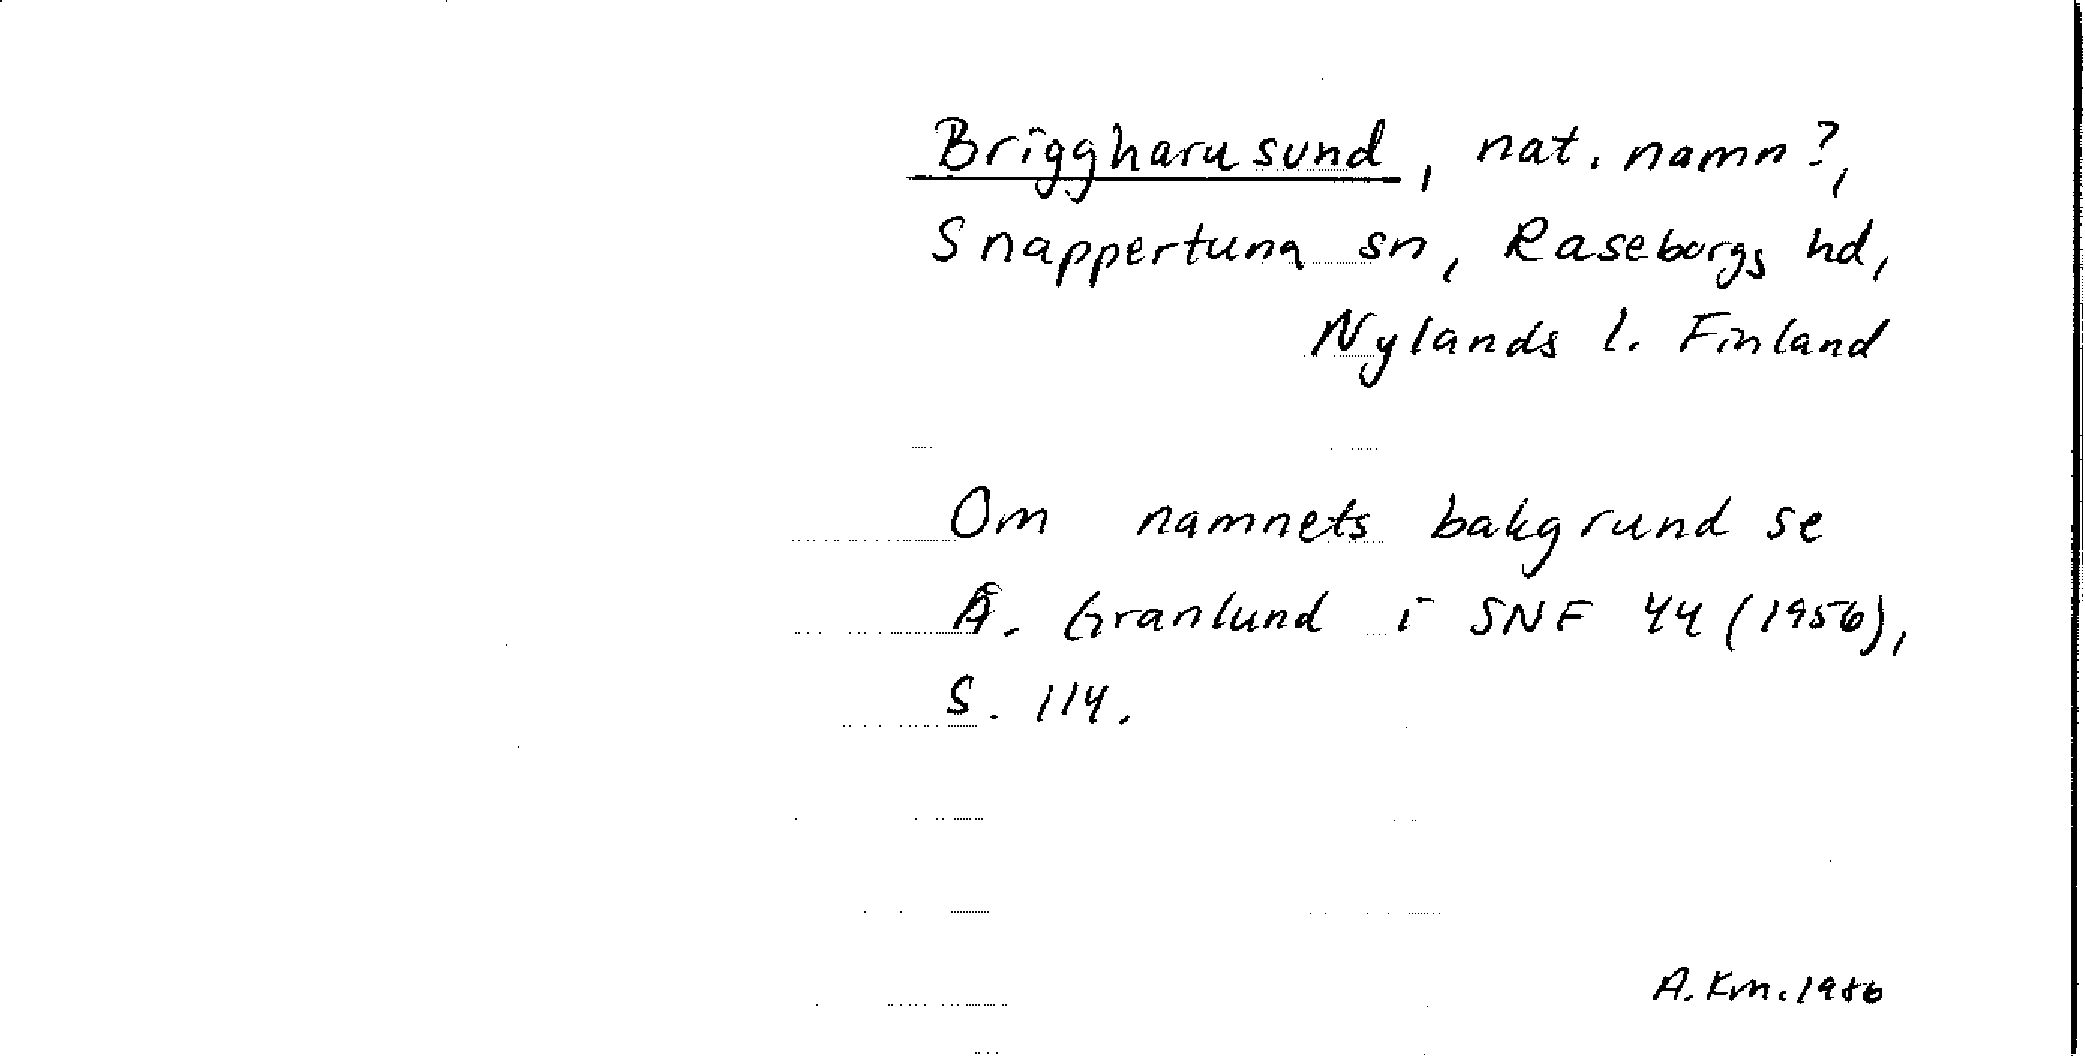 Briggharusund, nat. namn?,
Snappertuna sn, Raseborgs hd,
Nylands l. Finland
Om namnets bakgrund se
Å. Granlund i SNF 44 (1956),
S. 114.
A. Km. 1986